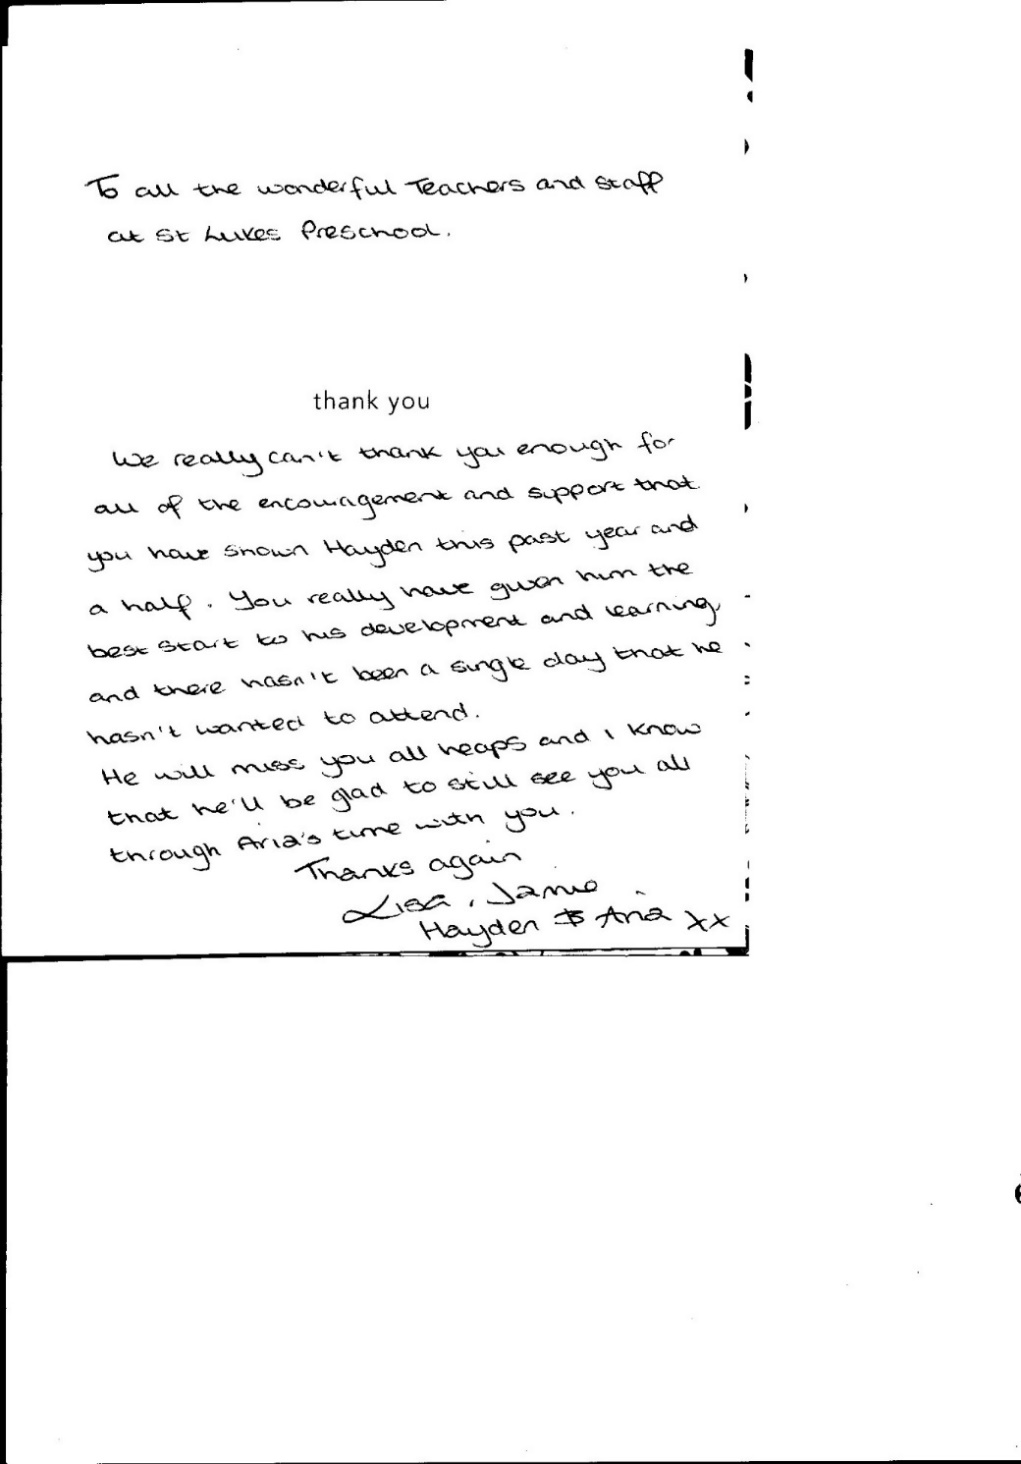 To all the wonderful Teachers and staff
at St Lukes Preschool.
thank you
We really can't thank you enough for
all of the encouragement and support that
you have shown Hayden this past year and
a half. You really have given him the
best start to his development and learning,
and there hasn't been a single day that he
hasn't wanted to attend.
He will miss you all heaps and I know
that he'll be glad to still see you all
through Aria's time with you.
Thanks again
Lisa, Jamie,
Hayden & Aria xx